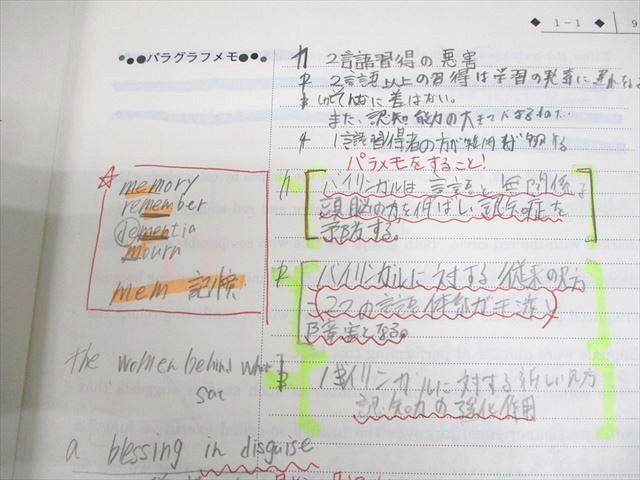 ◆ 1-1 ◆ 9
●●●パラグラフメモ●●●
2言語習得の悪害
2言語以上の習得は学習の発育に遅れ
に差はない。
また、認知能力の
1言語習得者の方が
パラメモをすること!
☆ memory
remember
dementia
mourn
mem 記憶
バイリンガルは言語と無関係な
頭脳の力を伸ばし認知症を
予防する。
バイリンガルに対する従来の見方
2つの言語体系が干渉し
障害となる。
バイリンガルに対する新しい見方
認知力の強化作用
the women behind whom
sat
a blessing in disguise